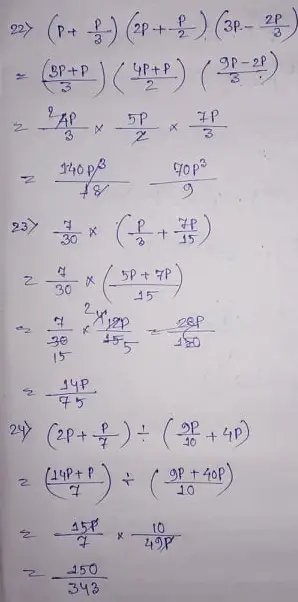 22) (P + P/3) (2P + P/2) (3P - 2P/3)
= (3P+P/3) (4P+P/2) (9P-2P/3)
= 4P/3 × 5P/2 × 7P/3
= 140P³/18 70P³/9
23) 7/30 × (P/3 + 7P/15)
= 7/30 × (5P+7P/15)
= 7/30 15 × 2 4 12P/15 5 =
= 14P/75
24) (2P + P/7) ÷ (9P/10 + 4P)
= (14P+P/7) ÷ (9P+40P/10)
= 15P/7 × 10/49P
= 150/343